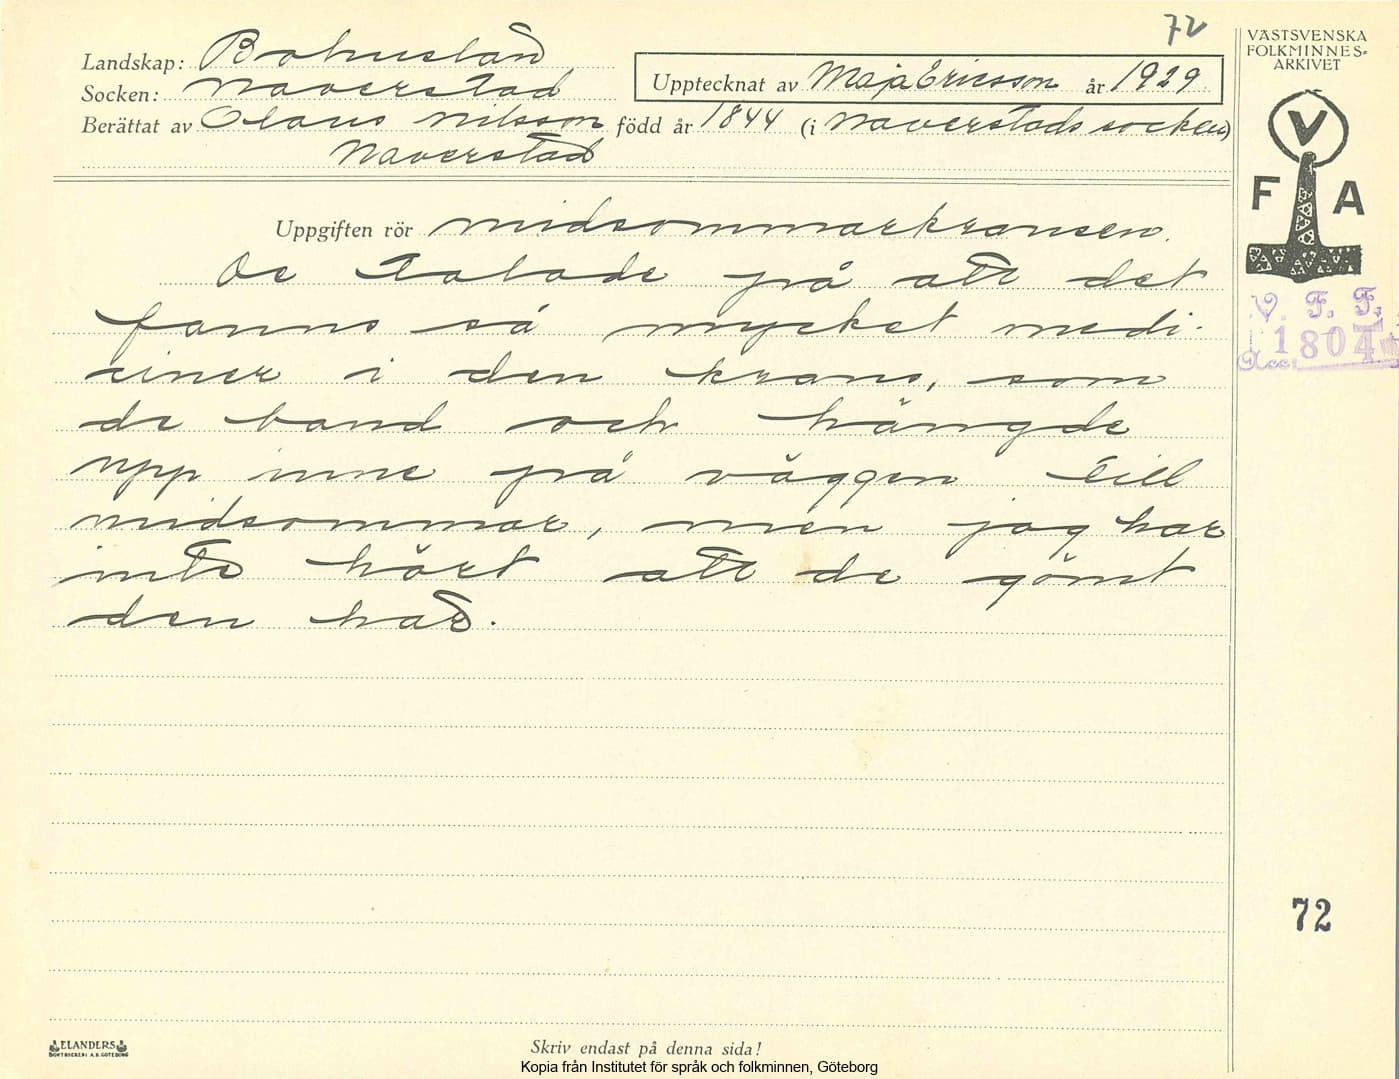 72
VÄSTSVENSKA
FOLKMINNES-
ARKIVET
Landskap: Bohuslän
Socken: Naverstad
Upptecknat av Maja Ericsson år 1929
Berättat av Olaus Nilsson född år 1844 (i Naverstads socken)
Naverstad
V
F A
V. F. F.
Acc. 1804
Uppgiften rör midsommarkransen.
De talade på att det
fanns så mycket medi-
ciner i den krans, som
de band och hängde
upp inne på väggen till
midsommar, men jag har
inte hört att de gömt
den hat.
72
ELANDERS
BOKTRYCKERI A.B. GÖTEBORG
Skriv endast på denna sida!
Kopia från Institutet för språk och folkminnen, Göteborg